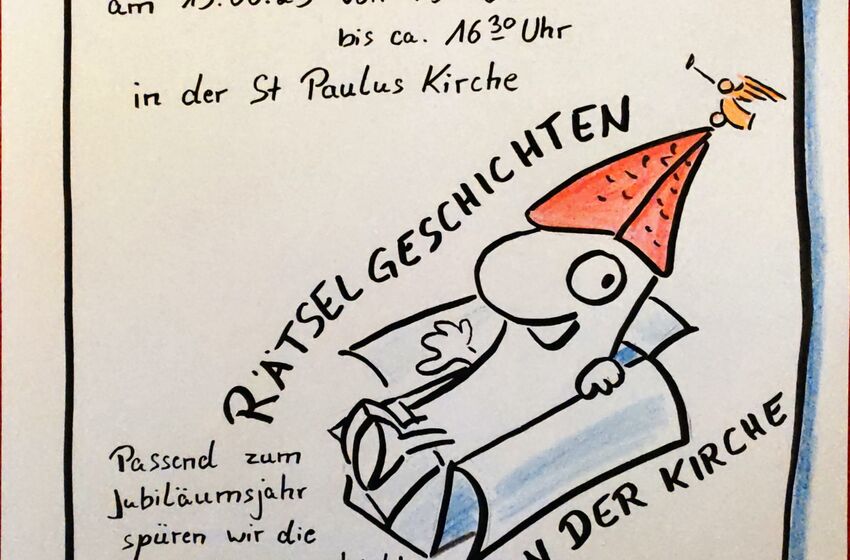 am
bis ca. 16 30 Uhr
in der St Paulus Kirche
RÄTSELGESCHICHTEN
DER KIRCHE
Passend zum
Jubiläumsjahr
spüren wir die